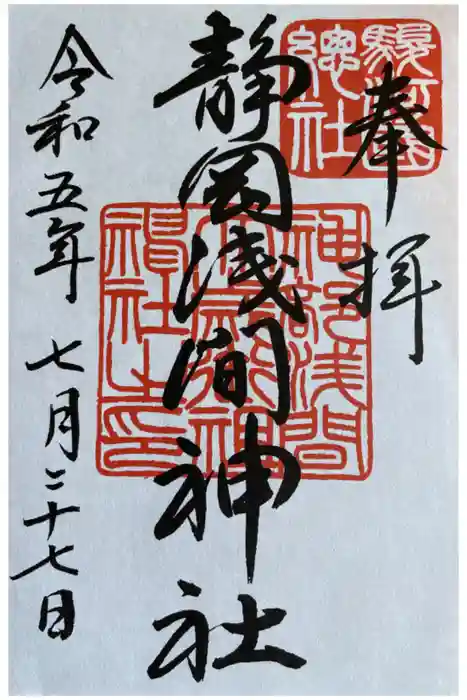 奉拝
駿河國
總社
静岡浅間神社
神部浅間
大歳御祖
神社之印
令和五年七月二十七日